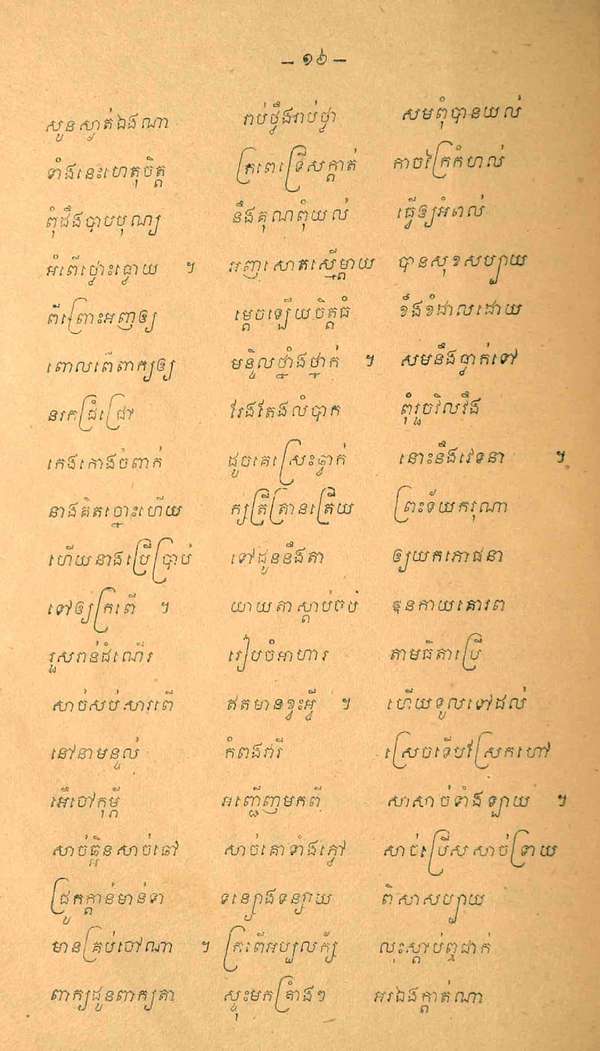 – ១៦ –
សួនស្ងាត់ឯងណា រាប់ថ្លឹងរាប់ថ្លា សមពុំបានយល់
ទាំងនេះហេតុចិត្ត ក្រពេទ្រើសក្តាត់ កាចវៃក្រៃកំហល់
ពុំដឹងបាបបុណ្យ នឹងគុណពុំយល់ ធ្វើឲ្យអំពល់
អំពើថ្លោះធ្លោយ ។ អញសោតស្មើម្តាយ បានសុខសប្បាយ
ពីព្រោះអញឲ្យ ម្តេចឡើយចិត្តធំ ខឹងខំដាលដោយ
ពោលពើពាក្យឲ្យ មន្ទិលថ្នាំងថ្នាក់ ។ សមនឹងធ្លាក់ទៅ
នរកជ្រំជ្រៅ រែងតែងលំបាក ពុំរួចវិលវឹង
កេងកោងចំពាក់ ដូចគេស្រែះធ្លាក់ នោះនឹងវេទនា ។
នាងគិតប្នោះហើយ ក្សត្រីត្រានត្រើយ ព្រះទ័យករុណា
ហើយនាងប្រើប្រាប់ ទៅដូននឹងតា ឲ្យយកភោជនា
ទៅឲ្យក្រពើ ។ យាយតាស្តាប់ចប់ ឱនកាយគោរព
រួសរាន់ដំណើរ រៀបចំអាហារ តាមធីតាប្រើ
សាច់សប់សារពើ ឥតមានខ្វះអ្វី ។ ហើយទូលទៅដល់
នៅនាមន្ទល់ កំពង់វារី ស្រេចទើបស្រែកហៅ
អើចៅកុម្ភី អញ្ជើញមកពី សាសាច់ទាំងឡាយ ។
សាច់ត្អិនសាច់ឆៅ សាច់គោទាំងភ្លៅ សាច់ប្រើសសាច់ទ្រាយ
ជ្រូកក្តាន់មាន់ទា ទន្សោងទន្សាយ ពិសាសប្បាយ
មានគ្រប់ចៅណា ។ ក្រពើអប្បលក្ស័ លុះស្តាប់ឮជាក់
ពាក្យដូនពាក្យតា ស្ទុះមកគ្រាំងៗ អរឯងក្តាត់ណា